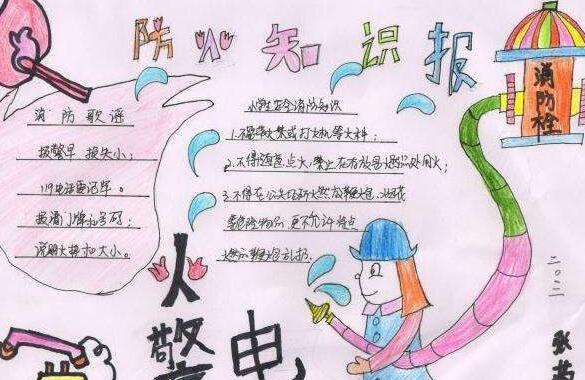 防火知识报
消防歌谣
报警早 损失小；
119电话要记牢。
报清门牌和号码；
说明火势和大小。
小学生安全消防知识
1.不要带火柴或打火机等火种；
2.不得随意点火，禁止在有放易燃品处用火；
3.不得在公共场所燃放鞭炮，
危险物品，更不允许将点
燃的鞭炮乱扔。
消防栓
火
警
电
二〇一一